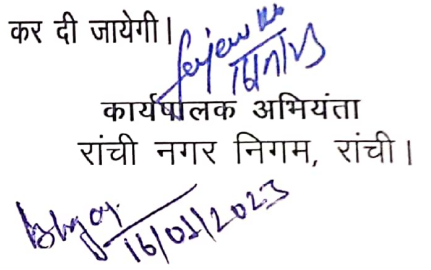 कर दी जायेगी।
कार्यपालक अभियंता
रांची नगर निगम, रांची।
16/01/2023